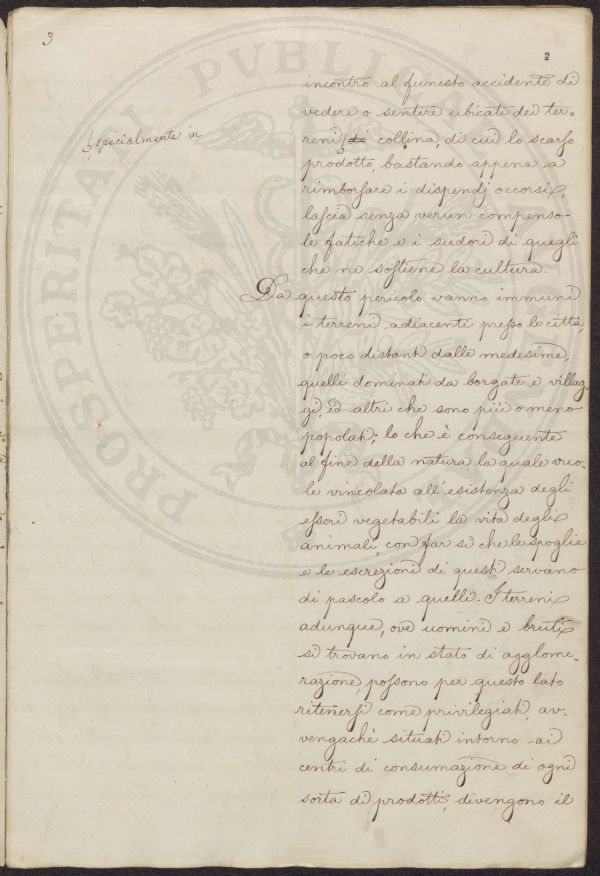 3
2
incontro al funesto accidente di
vedere o sentire ubicati dei ter-
specialmente in
reni di collina di cui lo scarso
prodotto, bastando appena a
rimborsare i dispendj occorsi,
lascia senza verun compenso
le fatiche e i sudori di quegli
che ne sostiene la cultura.
Da questo pericolo vanno immuni
i terreni adiacenti presso le città,
o poco distanti dalle medesime,
quelli dominati da borgate e villag-
gi, ed altri che sono più o meno
popolati; lo che è conseguente
al fine della natura la quale vuo-
le vincolata all'esistenza degli
esseri vegetabili la vita degli
animali, con far sì che le spoglie
e le escrezioni di questi servano
di pascolo a quelli. I terreni
adunque, ove uomini e bruti
si trovano in stato di agglome-
razione, possono per questo lato
ritenersi come privilegiati, av-
vengachè situati intorno ai
centri di consumazione di ogni
sorta di prodotti, divengono il
PROSPERITATI PUBLICAE